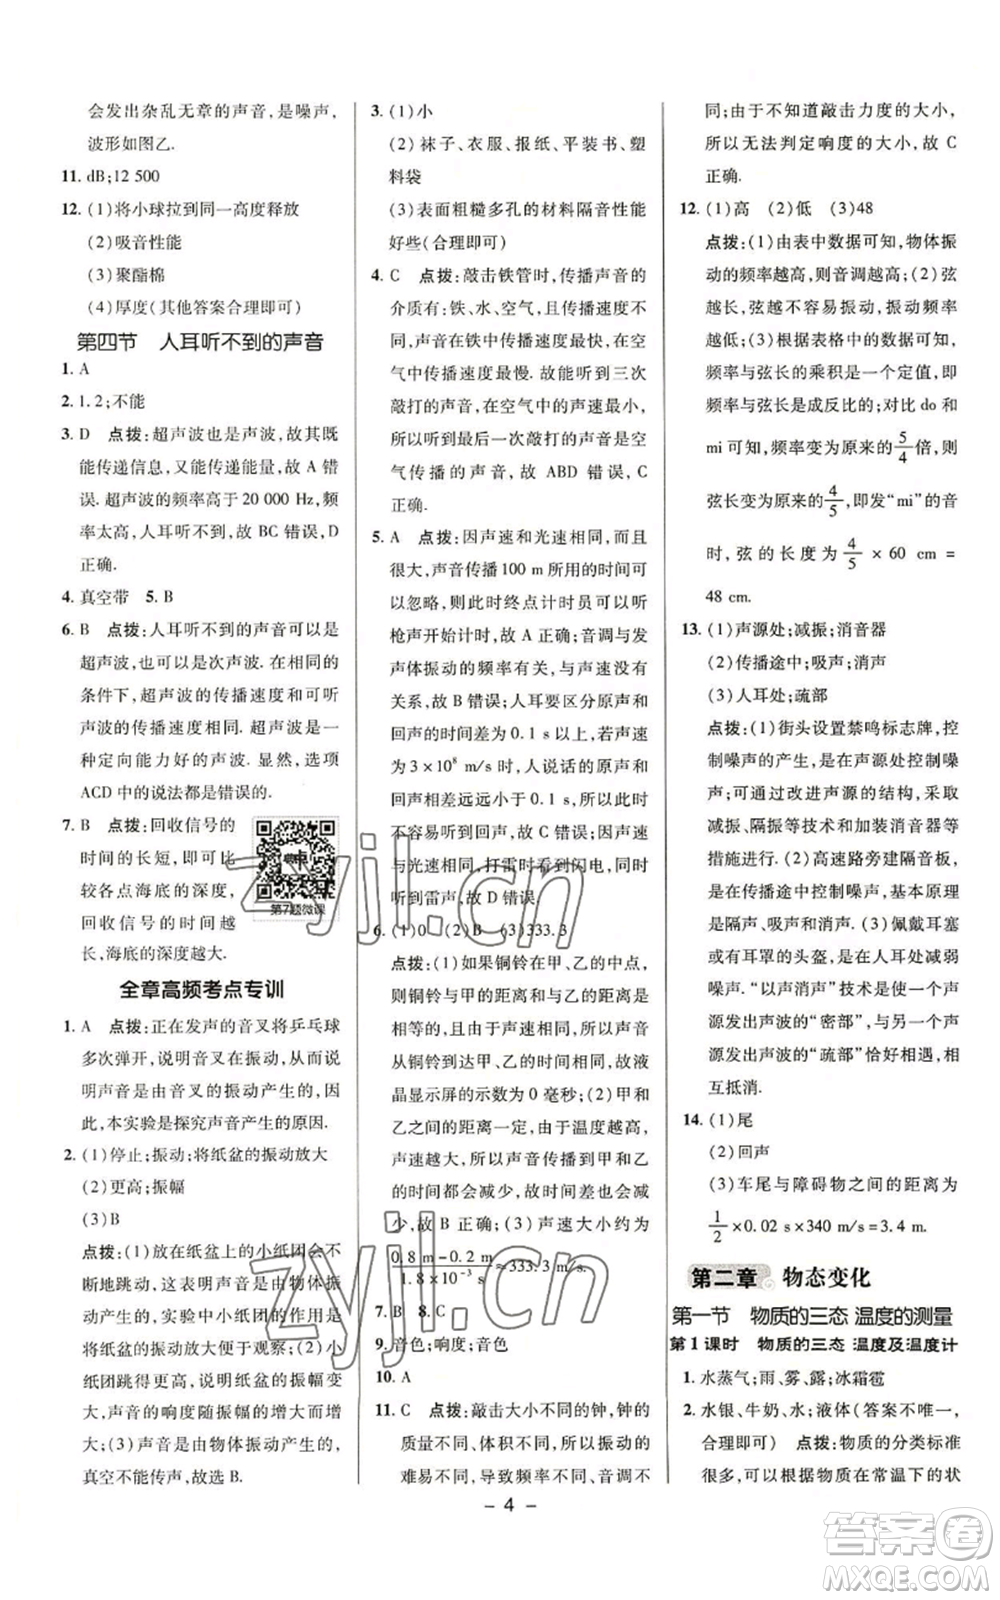 会发出杂乱无章的声音,是噪声,
波形如图乙.
11. dB;12 500
12. (1)将小球拉到同一高度释放
(2)吸音性能
(3)聚酯棉
(4)厚度(其他答案合理即可)
第四节 人耳听不到的声音
1. A
2. 1.2;不能
3. D 点拨:超声波也是声波,故其既
能传递信息,又能传递能量,故 A 错
误. 超声波的频率高于 20 000 Hz,频
率太高,人耳听不到,故 BC 错误,D
正确.
4. 真空带 5. B
6. B 点拨:人耳听不到的声音可以是
超声波,也可以是次声波. 在相同的
条件下,超声波的传播速度和可听
声波的传播速度相同. 超声波是一
种定向能力好的声波. 显然,选项
ACD 中的说法都是错误的.
7. B 点拨:回收信号的
时间的长短,即可比
较各点海底的深度,
回收信号的时间越
长,海底的深度越大.
第7题微课
全章高频考点专训
1. A 点拨:正在发声的音叉将乒乓球
多次弹开,说明音叉在振动,从而说
明声音是由音叉的振动产生的,因
此,本实验是探究声音产生的原因.
2. (1)停止;振动;将纸盆的振动放大
(2)更高;振幅
(3)B
点拨:(1)放在纸盆上的小纸团会不
断地跳动,这表明声音是由物体振动
产生的,实验中小纸团的作用是
将纸盆的振动放大,便于观察;(2)小
纸团跳得高,说明纸盆的振幅变大,
声音的响度随振幅的增大而增
大;(3)声音是由物体振动产生的,
真空不能传声,故选 B.
3. (1)小
(2)袜子、衣服、报纸、平装书、塑
料袋
(3)表面粗糙多孔的材料隔音性能
好些(合理即可)
4. C 点拨:敲击铁管时,传播声音的
介质有:铁、水、空气,它们的传播速度不
同,声音在铁中传播速度最快,在空
气中传播速度最慢. 故能听到三次
敲打的声音,在空气中的声速最小,
所以听到最后一次敲打的声音是空
气传播的声音,故 ABD 错误,C
正确.
5. A 点拨:因声速和光速相差
很大,声音传播 100 m 所用的时间不
可以忽略,则此时终点计时员可以听
枪声开始计时,故 A 正确;音调与发
声体振动的频率有关,与声速没有
关系,故 B 错误;人耳要区分原声和
回声的时间差为 0.1 s 以上,光速
为 3×10⁸ m/s,人说话的原声和
回声时间差远远小于 0.1 s,所以
不容易听到回声,故 C 错误;因声速
与光速相差较大,打雷时看到闪电,
不能同时听到雷声,故 D 错误.
6. (1)0 (2)B (3)333.3
点拨:(1)如果铜铃在甲、乙的中点,
则铜铃与甲的距离和与乙的距离是
相等的,由于声速相同,所以声音
从铜铃到达甲、乙的时间相同,故液
晶显示屏的示数为 0 毫秒;(2)甲和
乙之间的距离一定,由于温度越高,
声速越大,所以声音传播到甲和乙
的时间都会减少,它们的时间差也
会减少,故 B 正确;(3)声速大小约为
0.8 m-0.2 m / 1.8×10⁻³ s ≈333.3 m/s.
7. B 8. C
9. 音色;响度;音色
10. A
11. C 点拨:敲击大小不同的钟,钟的
质量不同、体积不同,所以振动的
难易不同,导致频率不同、音调不
同;由于不知道敲击力度的大小,
所以无法判定响度的大小,故 C
正确.
12. (1)高 (2)低 (3)48
点拨:(1)由表中数据可知,物体振
动的频率越高,则音调越高;(2)弦
越长,越不容易振动,振动频率
越低;(3)根据表格中的数据可知,
频率与弦长的乘积是一个定值,即
频率与弦长是成反比的;对比 do 和
mi 可知,频率变为原来的 5/4 倍,则
弦长变为原来的 4/5,即发“mi”的音
时,弦的长度为 4/5 × 60 cm =
48 cm.
13. (1)声源处;减振;消音器
(2)传播途中;吸声;消声
(3)人耳处;疏部
点拨:(1)街头设置禁鸣标志牌,控
制噪声的产生,是在声源处控制噪
声;可通过改进声源的结构,采取
减振、隔振等技术和加装消音器等
措施进行. (2)高速路旁建隔音板,
是在传播途中控制噪声,基本原理
是隔声、吸声和消声. (3)佩戴耳塞
或有耳罩的头盔,是在人耳处控制
噪声的. “以声消声”技术是使一个声
源发出声波的“密部”,与另一个声
源发出声波的“疏部”恰好相遇,相
互抵消.
14. (1)尾
(2)回声
(3)车尾与障碍物之间的距离为
1/2 ×0.02 s×340 m/s=3.4 m.
第二章 物态变化
第一节 物质的三态 温度的测量
第 1 课时 物质的三态 温度及温度计
1. 水蒸气;雨、雾、露;冰霜雹
2. 水银、牛奶、水;液体(答案不唯一,
合理即可) 点拨:物质的分类标准
很多,可以根据物质在常温下的状
– 4 –
zyjl.cn
zyjl.cn
答案圈
MXQE.COM